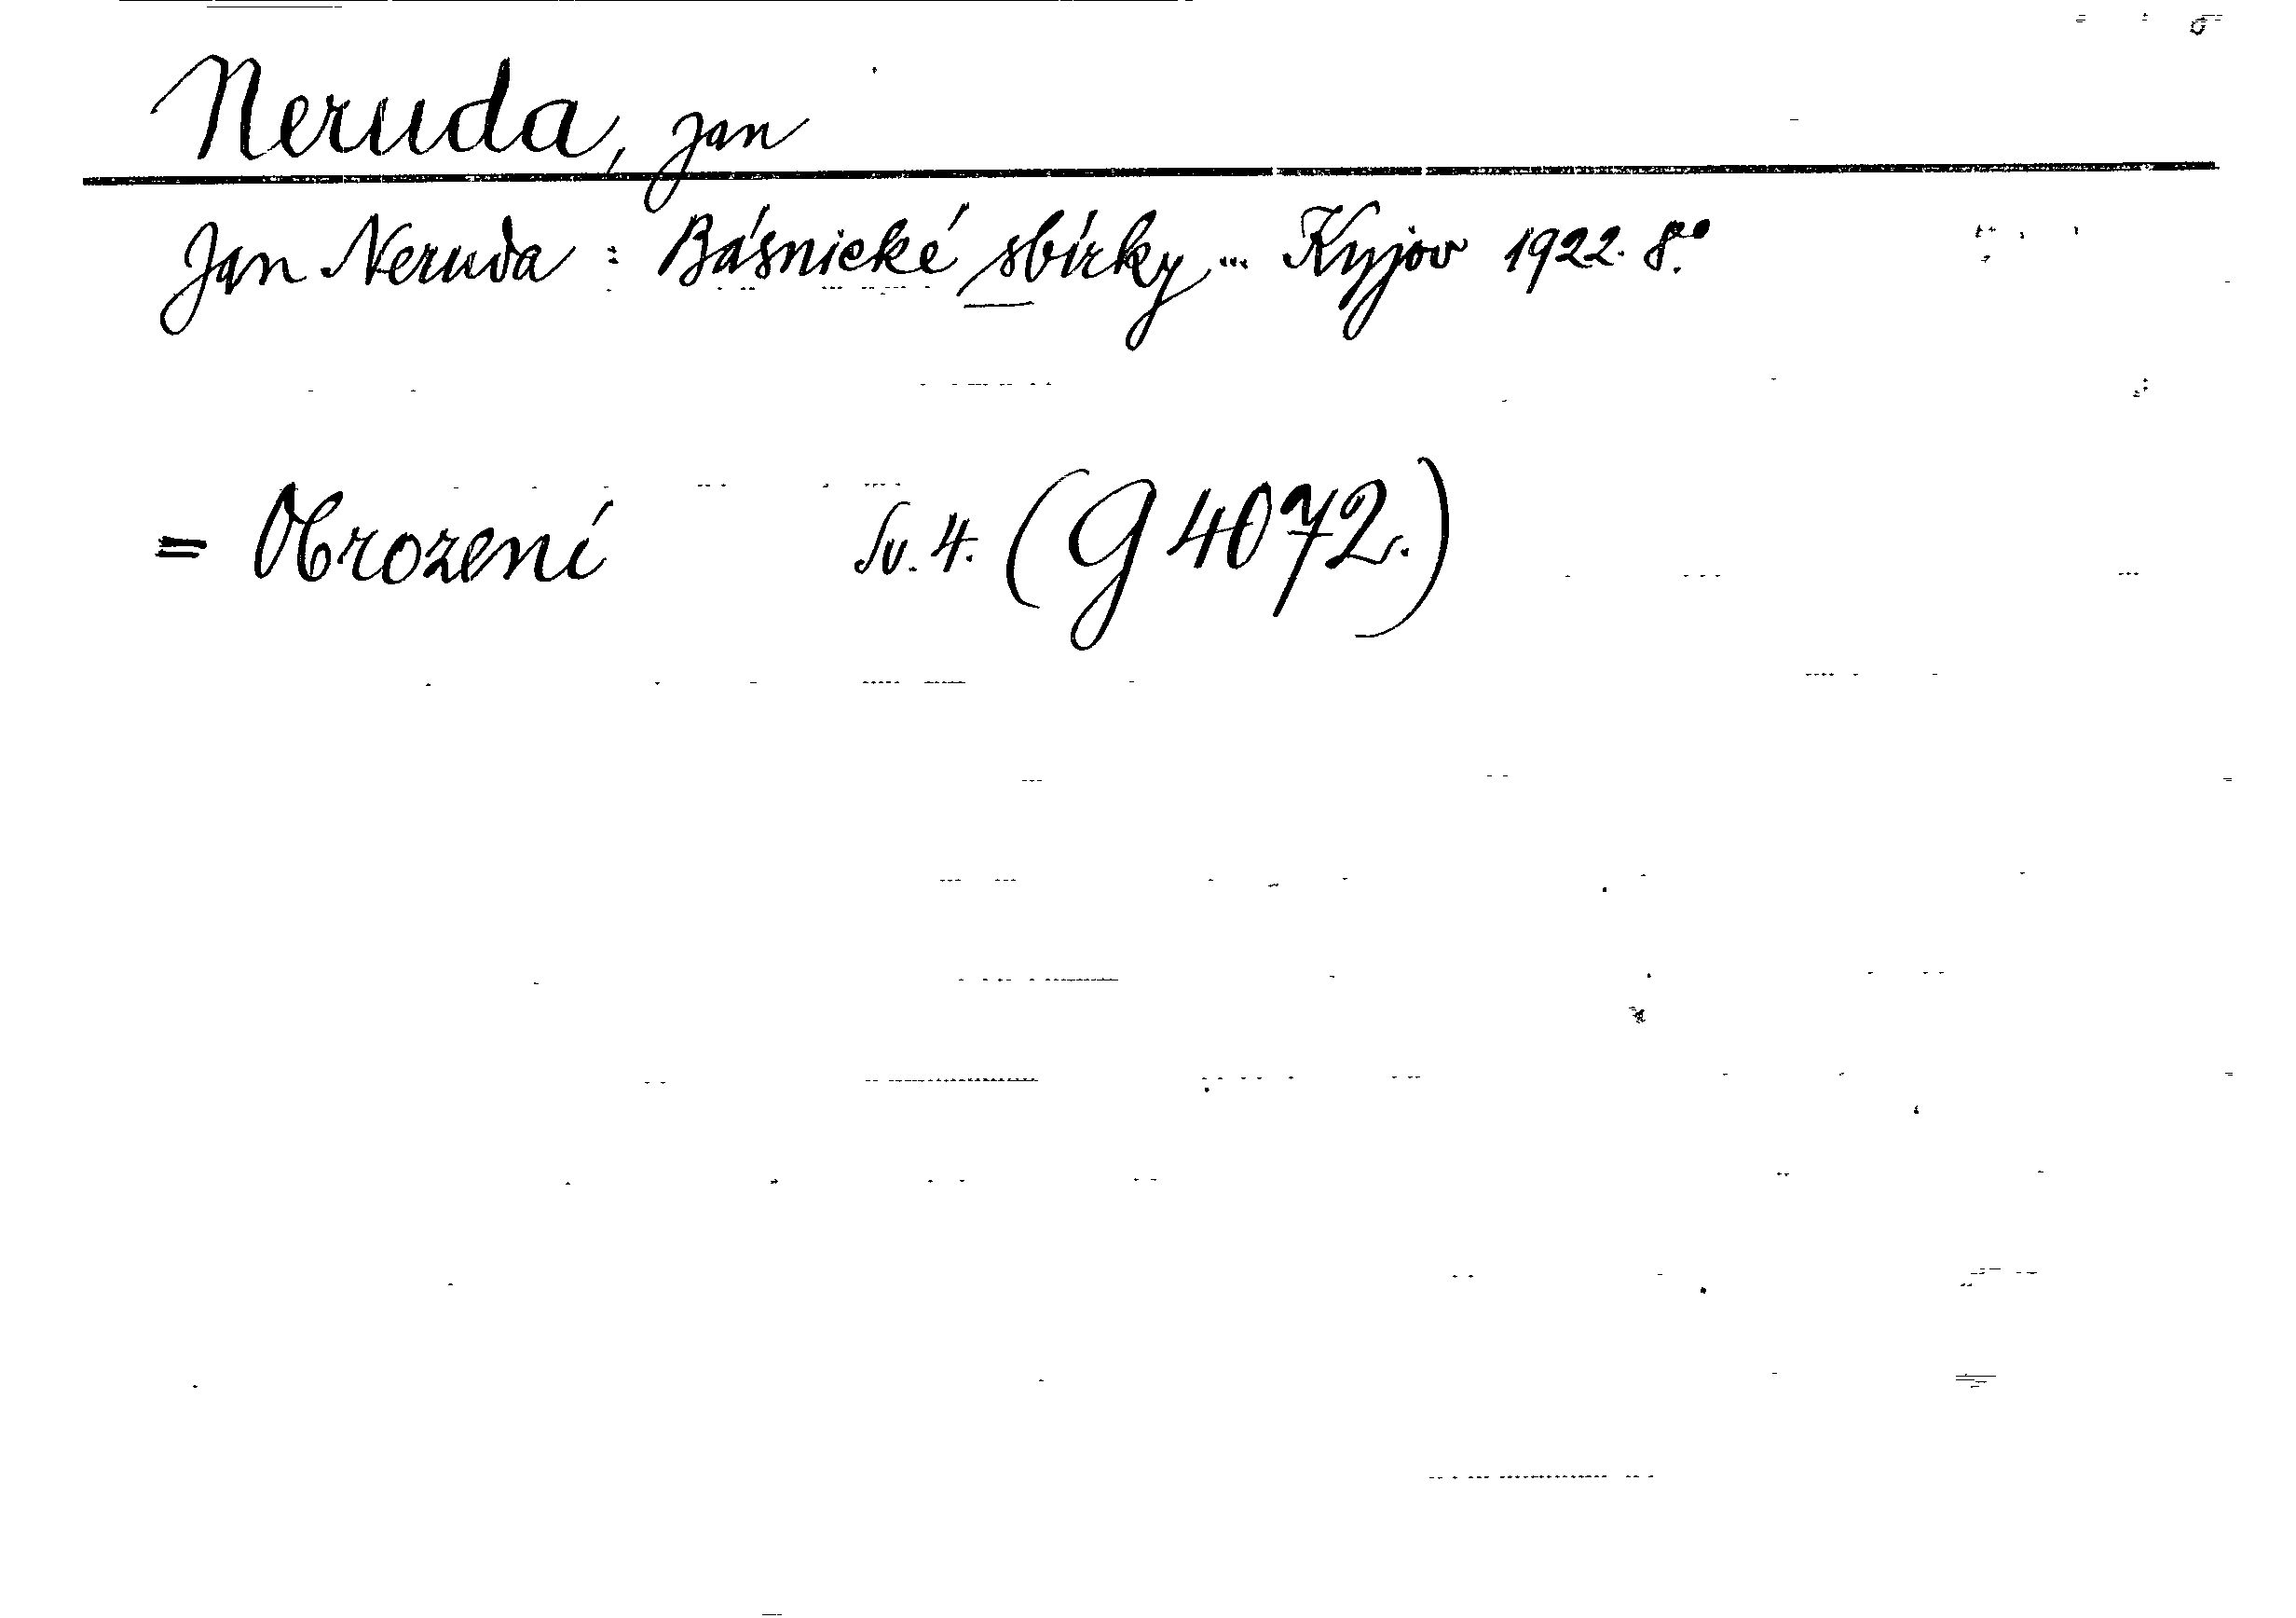 Neruda, Jan
Jan Neruda : Básnické sbírky... Kyjov 1922. 8.°
= Obrození Sv. 4. (G 4072.)